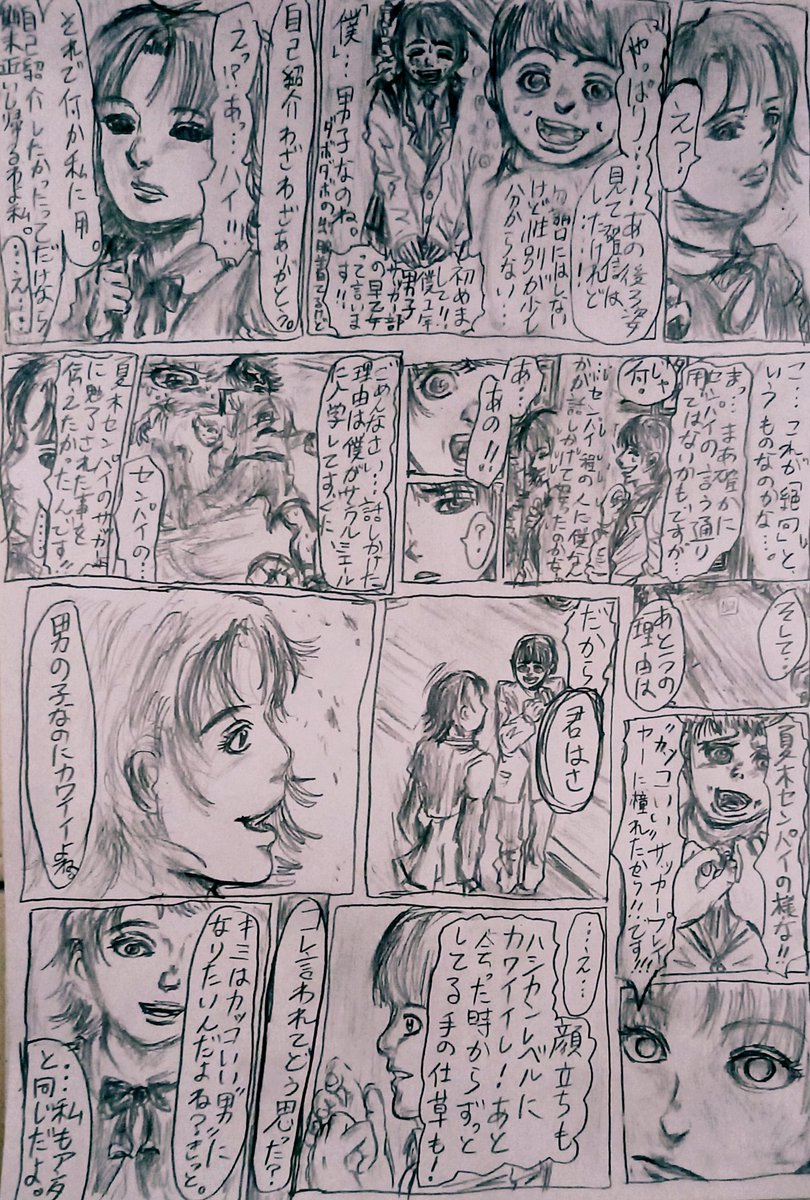 え?
やっぱり…!あの後ろ姿
見て確信は
したけれど
…!!
けど性別が少し
分からない…
初めま
して!!
僕1年
男子
サッカー部
の早乙女
って言いま
す!!
「僕」…男子なのね。
自己紹介わざわざありがとう。
えっ!?あっ…ハイ!!!
それで何か私に用。
自己紹介したかったってだけなら
帰るわよ私。
…え…
こ…これが「絶句」と、
いうものなのかな…。
まっ…まあ確かに
センパイの言う通り
用ではないかもですが…
じゃ
何。
あ…
あの!!
?
ごめんなさい…話しかけた
理由は僕が
に入学してすぐに
センパイの…
夏木センパイのサッカー
に魅了された事を
伝えたかったんです!!
……
そして…
あと1つの
理由は
夏木センパイの様な!!
"カッコいい"サッカープレイ
ヤーに憧れたから!!です!!!
だから
君はさ
男の子なのにカワイイよね。
…え…
顔立ちも
ハシカンレベルに
カワイイし!あと
会った時からずっと
してる手の仕草も!
コレ言われてどう思った?
キミはカッコいい"男"に
なりたいんだよね?きっと。
…私もアンタ
と同じだよ。